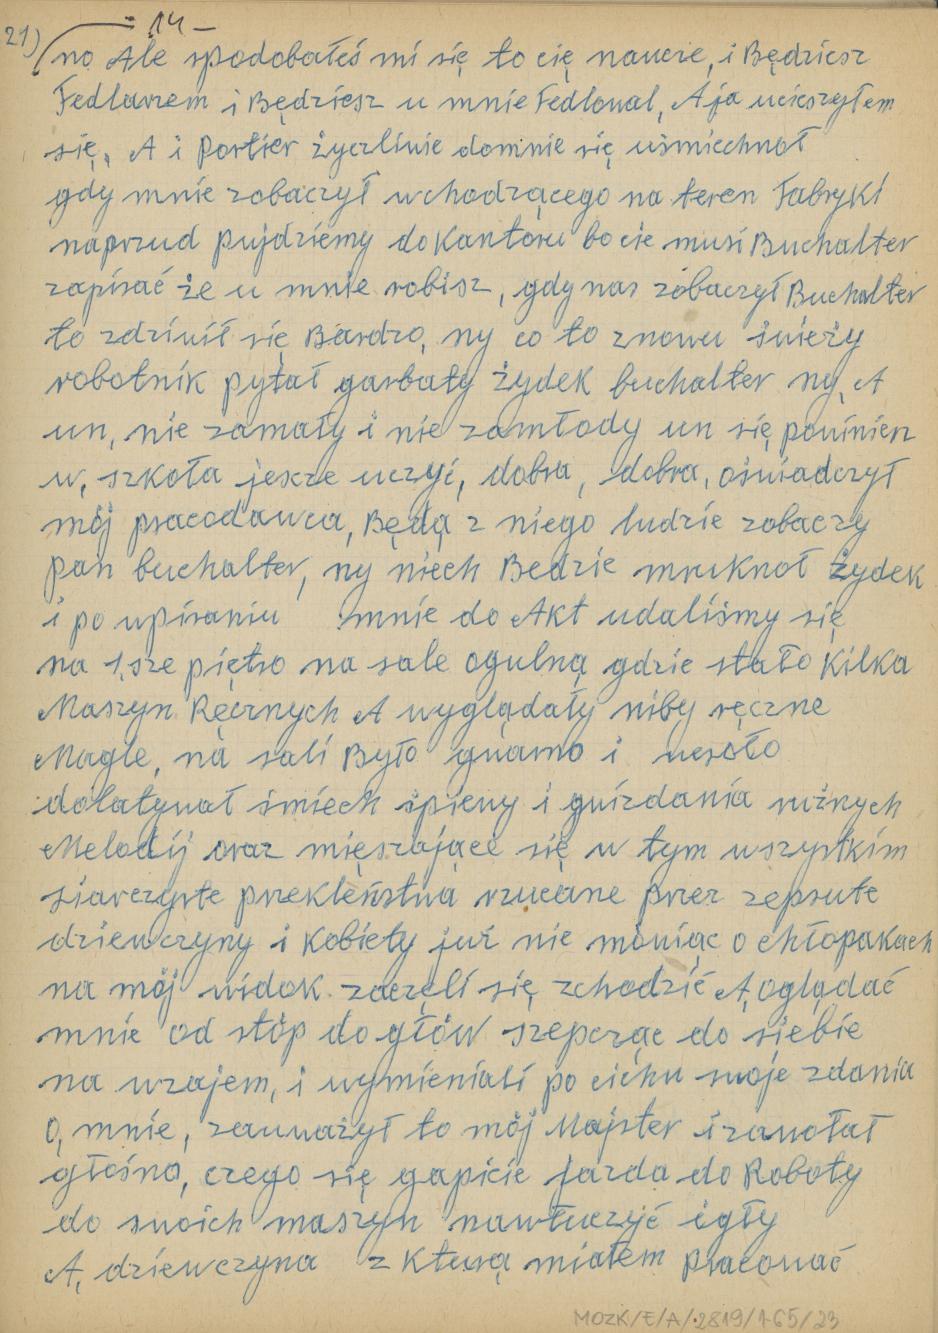 21) - 14 -
no Ale spodobałeś mi się to cię naucze, i Będziesz
Fedlarzem i Będziesz u mnie Fedlował, A ja ucieszyłem
się, A i portier życzliwie domnie się uśmiechnoł
gdy mnie zobaczył wchodzącego na teren Fabryki
naprzud pujdziemy do Kantoru bo cie musi Buchalter
zapisać że u mnie robisz, gdy nas zobaczył Buchalter
to zdziwił się Bardzo, ny co to znowu świeży
robotnik pytał garbaty żydek buchalter ny, A
un, nie zamały i nie zamłody un się powinien
w, szkoła jescze uczyć, dobra, dobra, oświadczył
mój pracodawca, Będą z niego ludzie zobaczy
pan buchalter, ny niech Bedzie mruknoł żydek
i po wpisaniu mnie do Akt udaliśmy się
na 1,sze piętro na sale ogulną gdzie stało Kilka
Maszyn Ręcznych A wyglądały niby ręczne
Magle, na sali Było gwarno i wesoło
dolatywał śmiech śpiewy i gwizdania rużnych
Melodij oraz mięszające się w tym wszystkim
siarczyste przekleństwa rzucane przez zepsute
dziewczyny i Kobiety już nie mówiąc o chłopakach
na mój widok zaczęli się zchodzić A, oglądać
mnie od stóp do głów szepcząc do siebie
na wzajem, i wymieniali po cichu swoje zdania
O, mnie, zauważył to mój Majster i zawołał
głośno, czego się gapicie jazda do Roboty
do swoich maszyn nawłuczyć igły
A, dziewczyna z Kturą miałem Pracować
MOZK/E/A/2819/1-65/23